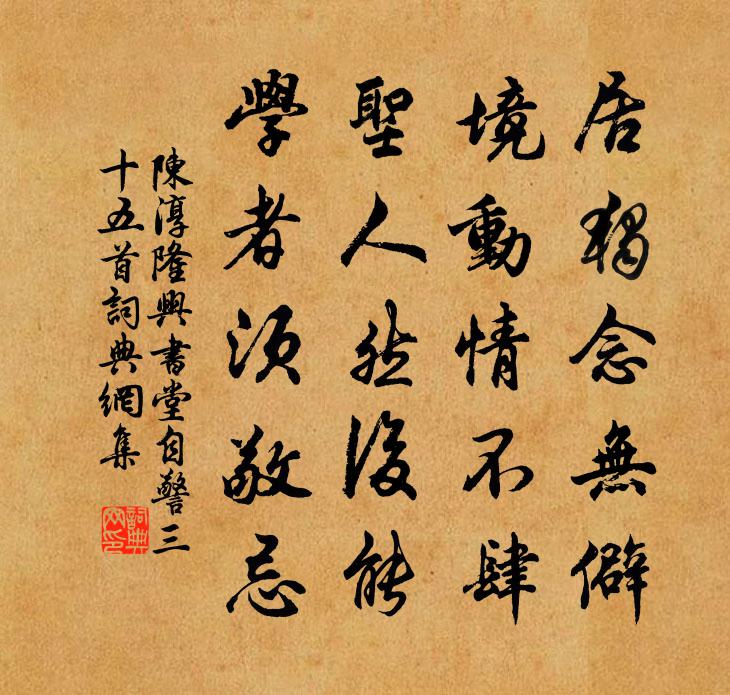 居獨念無僻
境動情不肆
聖人然後能
學者須敬忌
陳淳隆興書堂自警三
十五首詞典網集
詞典網印